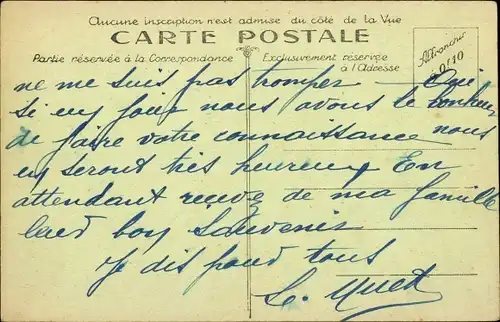 Aucune inscription n'est admise du côté de la Vue
CARTE POSTALE
Partie réservée à la Correspondance
Exclusivement réservée
à l'Adresse
Affranchir
à 0f10
ne me suis pas tromper Qui
si un jour nous avons le bonheur
de faire votre connaissance nous
en seront très heureux En
attendant recevez de ma famille
bon Souvenir
Je dis pour tous